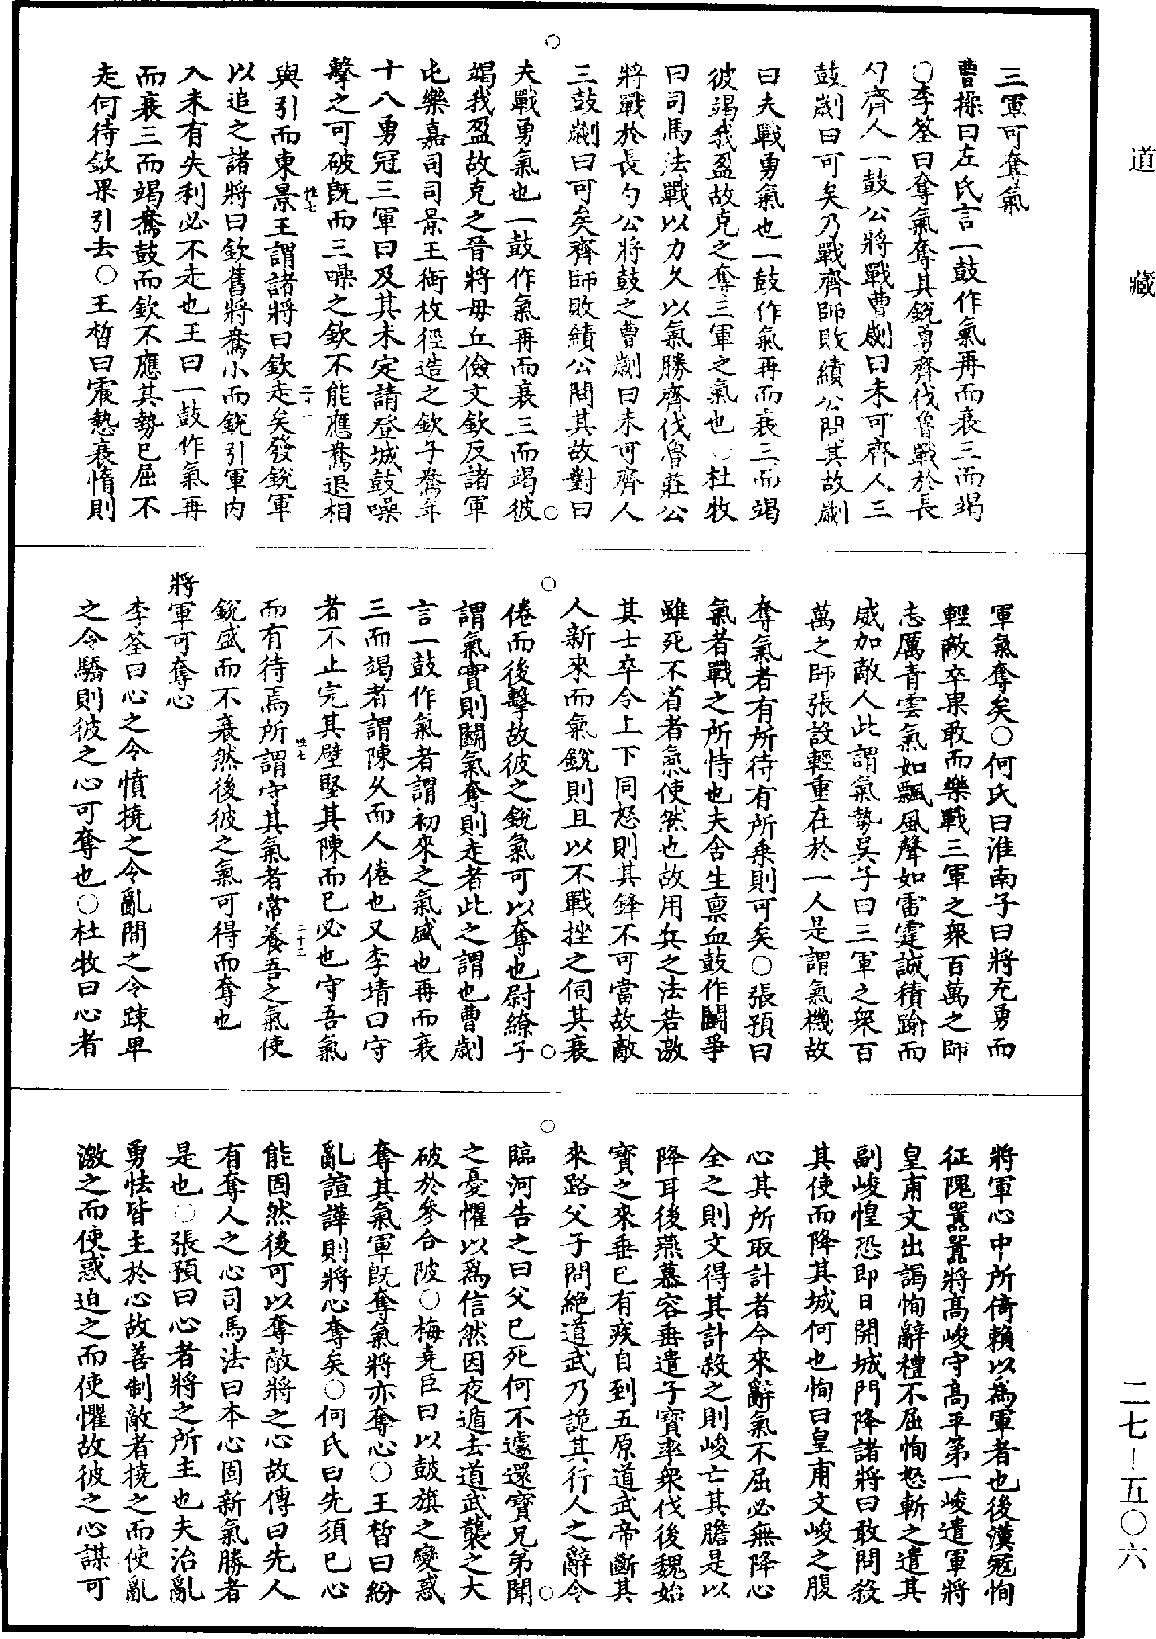 道藏
三軍可奪氣
曹操曰左氏言一鼓作氣再而衰三而竭
○李筌曰奪氣奪其銳勇齊伐魯戰於長
勺齊人一鼓公將戰曹劌曰未可齊人三
鼓劌曰可矣乃戰齊師敗績公問其故劌
曰夫戰勇氣也一鼓作氣再而衰三而竭
彼竭我盈故克之奪三軍之氣也○杜牧
曰司馬法戰以力久以氣勝齊伐魯莊公
將戰於長勺公將鼓之曹劌曰未可齊人
三鼓劌曰可矣齊師敗績公問其故對曰
夫戰勇氣也一鼓作氣再而衰三而竭彼
竭我盈故克之晉將毋丘儉文欽反諸軍
屯樂嘉司司景王銜枚徑造之欽子鴦年
十八勇冠三軍曰及其未定請登城鼓噪
擊之可破旣而三噪之欽不能應鴦退相
與引而東景王謂諸將曰欽走矣發銳軍
以追之諸將曰欽舊將鴦小而銳引軍內
入未有失利必不走也王曰一鼓作氣再
而衰三而竭鴦鼓而欽不應其勢已屈不
走何待欽果引去○王晳曰震慹衰惰則
軍氣奪矣○何氏曰淮南子曰將充勇而
輕敵卒果敢而樂戰三軍之衆百萬之師
志厲青雲氣如飄風聲如雷霆誠積踰而
威加敵人此謂氣勢吳子曰三軍之衆百
萬之師張設輕重在於一人是謂氣機故
奪氣者有所待有所乘則可矣○張預曰
氣者戰之所恃也夫含生禀血鼓作鬬爭
雖死不省者氣使然也故用兵之法若激
其士卒令上下同怒則其鋒不可當故敵
人新來而氣銳則且以不戰挫之伺其衰
倦而後擊故彼之銳氣可以奪也尉繚子
謂氣實則鬬氣奪則走者此之謂也曹劌
言一鼓作氣者謂初來之氣盛也再而衰
三而竭者謂陳久而人倦也又李靖曰守
者不止完其壁堅其陳而已必也守吾氣
而有待焉所謂守其氣者常養吾之氣使
銳盛而不衰然後彼之氣可得而奪也
將軍可奪心
李筌曰心之令憤撓之令亂間之令踈卑
之令驕則彼之心可奪也○杜牧曰心者
將軍心中所倚賴以爲軍者也後漢寇恂
征隗囂囂將高峻守高平第一峻遣軍將
皇甫文出謁恂辭禮不屈恂怒斬之遣其
副峻惶恐即日開城門降諸將曰敢問殺
其使而降其城何也恂曰皇甫文峻之腹
心其所取計者今來辭氣不屈必無降心
全之則文得其計殺之則峻亡其膽是以
降耳後燕慕容垂遣子寶率衆伐後魏始
寶之來垂已有疾自到五原道武帝斷其
來路父子問絕道武乃詭其行人之辭令
臨河告之曰父已死何不遽還寶兄弟聞
之憂懼以爲信然因夜遁去道武襲之大
破於參合陂○梅堯臣曰以鼓旗之變惑
奪其氣軍旣奪氣將亦奪心○王晳曰紛
亂諠譁則將心奪矣○何氏曰先須己心
能固然後可以奪敵將之心故傳曰先人
有奪人之心司馬法曰本心固新氣勝者
是也○張預曰心者將之所主也夫治亂
勇怯皆主於心故善制敵者撓之而使亂
激之而使惑迫之而使懼故彼之心謀可
二七—五〇六